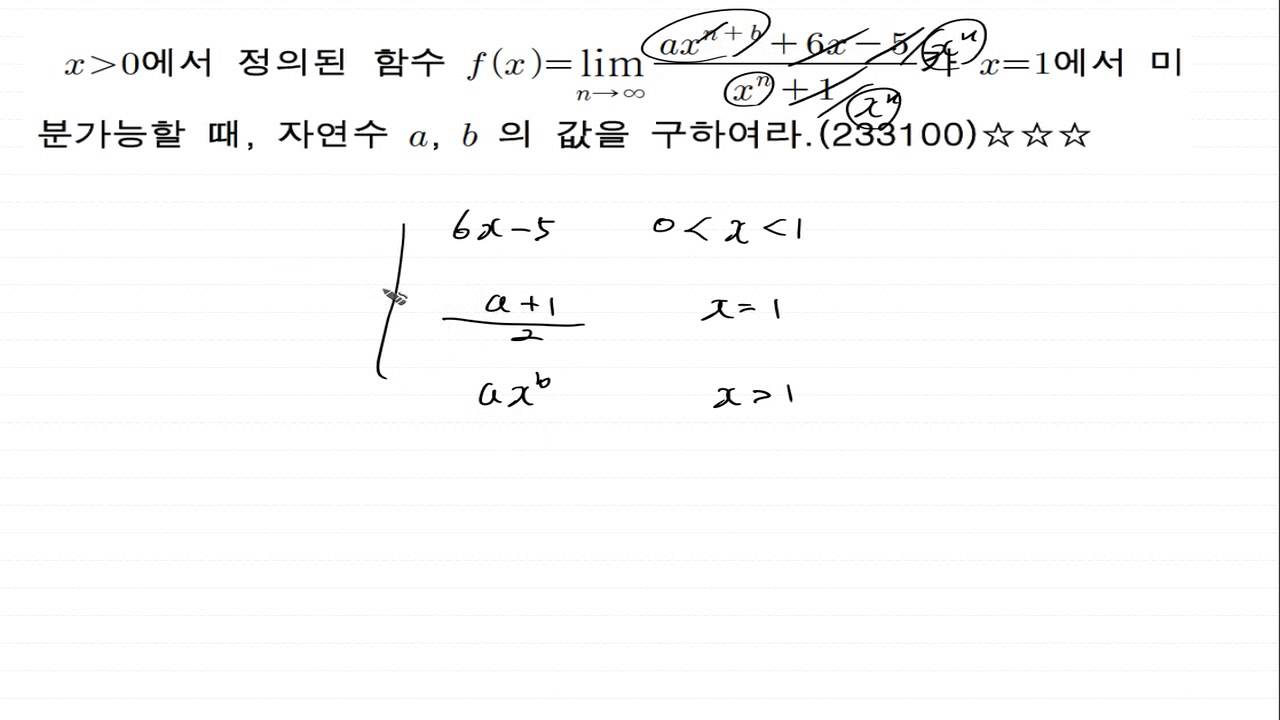 x>0에서 정의된 함수 f(x)=lim_{n→∞} (ax^{n+b}+6x-5)/(x^n+1) x=1에서 미
x^n
x^n
분가능할 때, 자연수 a, b 의 값을 구하여라.(233100)☆☆☆
6x-5 0<x<1
(a+1)/2 x=1
ax^b x>1